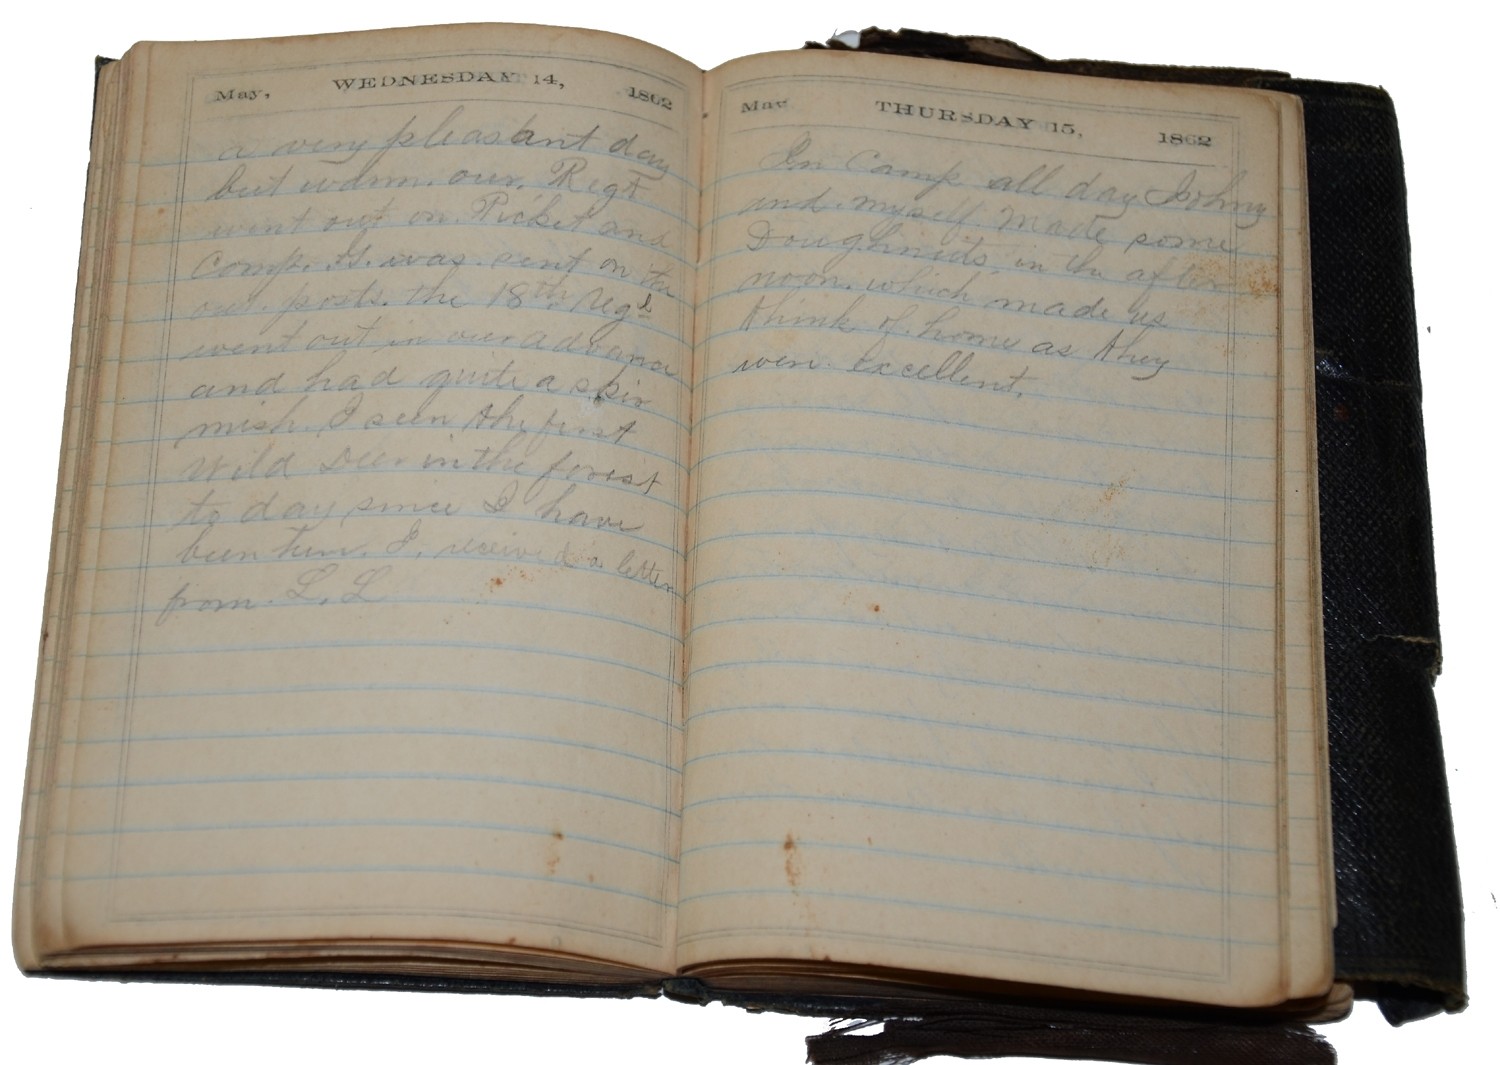 May, WEDNESDAY 14, 1862
a very pleasant day
but warm. our. Regt
went out on. Picket and
Comp. G. was. sent on the
out. posts. the 18th Regt
went out in our advance
and had quite a skir
mish. I seen the first
Wild Deer in the forest
to day since I have
been here. I, received a letter
from. L. L
May THURSDAY 15, 1862
In Camp all day Johny
and. myself. Made some
Doughnuts. in the after
noon. which made us
think of. home as they
were. excellent.